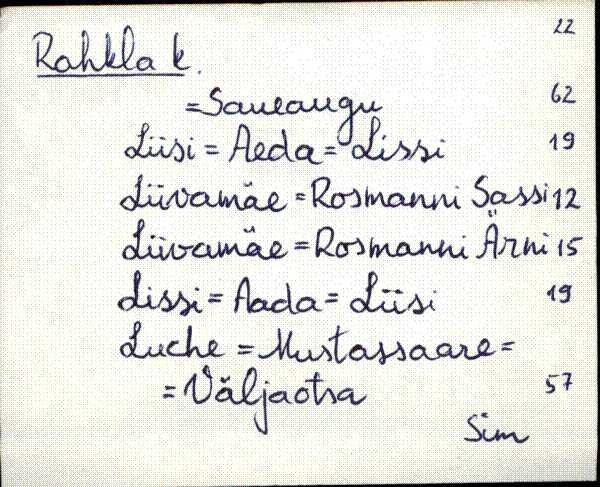 22
Rahkla k.
=Saueaugu 62
Liisi = Aeda = Lissi 19
Liivamäe = Rosmanni Sassi 12
Liivamäe = Rosmanni Ärni 15
Lissi = Aada = Liisi 19
Luche = Mustassaare =
= Väljaotsa 57
Sim